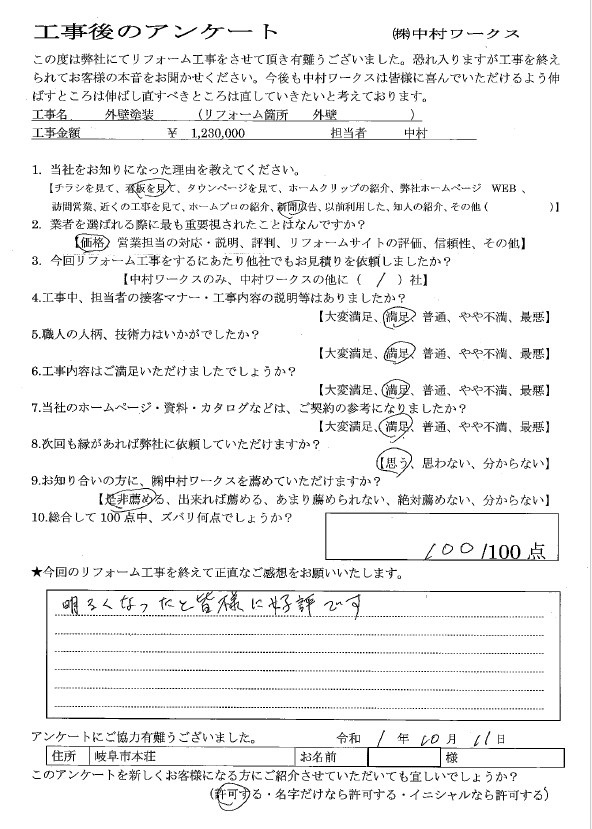 工事後のアンケート　㈱中村ワークス
この度は弊社にてリフォーム工事をさせて頂き有難うございました。恐れ入りますが工事を終え
られてお客様の本音をお聞かせください。今後も中村ワークスは皆様に喜んでいただけるよう伸
ばすところは伸ばし直すべきところは直していきたいと考えております。
工事名　外壁塗装　（リフォーム箇所　外壁　）
工事金額　￥ 1,230,000　担当者　中村
1. 当社をお知りになった理由を教えてください。
【チラシを見て、看板を見て、タウンページを見て、ホームクリップの紹介、弊社ホームページ　WEB 、
訪問営業、近くの工事を見て、ホームプロの紹介、新聞広告、以前利用した、知人の紹介、その他（　）】
2. 業者を選ばれる際に最も重要視されたことはなんですか？
【価格、営業担当の対応・説明、評判、リフォームサイトの評価、信頼性、その他】
3. 今回リフォーム工事をするにあたり他社でもお見積りを依頼しましたか？
【中村ワークスのみ、中村ワークスの他に（ / ）社】
4.工事中、担当者の接客マナー・工事内容の説明等はありましたか？
【大変満足、満足、普通、やや不満、最悪】
5.職人の人柄、技術力はいかがでしたか？
【大変満足、満足、普通、やや不満、最悪】
6.工事内容はご満足いただけましたでしょうか？
【大変満足、満足、普通、やや不満、最悪】
7.当社のホームページ・資料・カタログなどは、ご契約の参考になりましたか？
【大変満足、満足、普通、やや不満、最悪】
8.次回も縁があれば弊社に依頼していただけますか？
【思う、思わない、分からない】
9.お知り合いの方に、㈱中村ワークスを薦めていただけますか？
【是非薦める、出来れば薦める、あまり薦められない、絶対薦めない、分からない】
10.総合して100点中、ズバリ何点でしょうか？
100/100点
★今回のリフォーム工事を終えて正直なご感想をお願いいたします。
明るくなったと皆様に好評です
アンケートにご協力有難うございました。　令和 1 年 10 月 11 日
住所　岐阜市本荘　お名前　様
このアンケートを新しくお客様になる方にご紹介させていただいても宜しいでしょうか？
（許可する・名字だけなら許可する・イニシャルなら許可する）